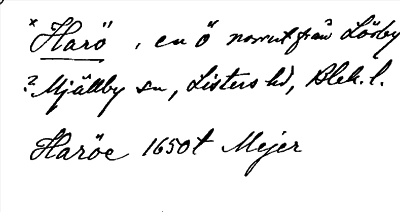 × Harö, en ö norrut från Lörby
? Mjällby sn, Listers hd, Blek. l.
Haröe 1650t Mejer